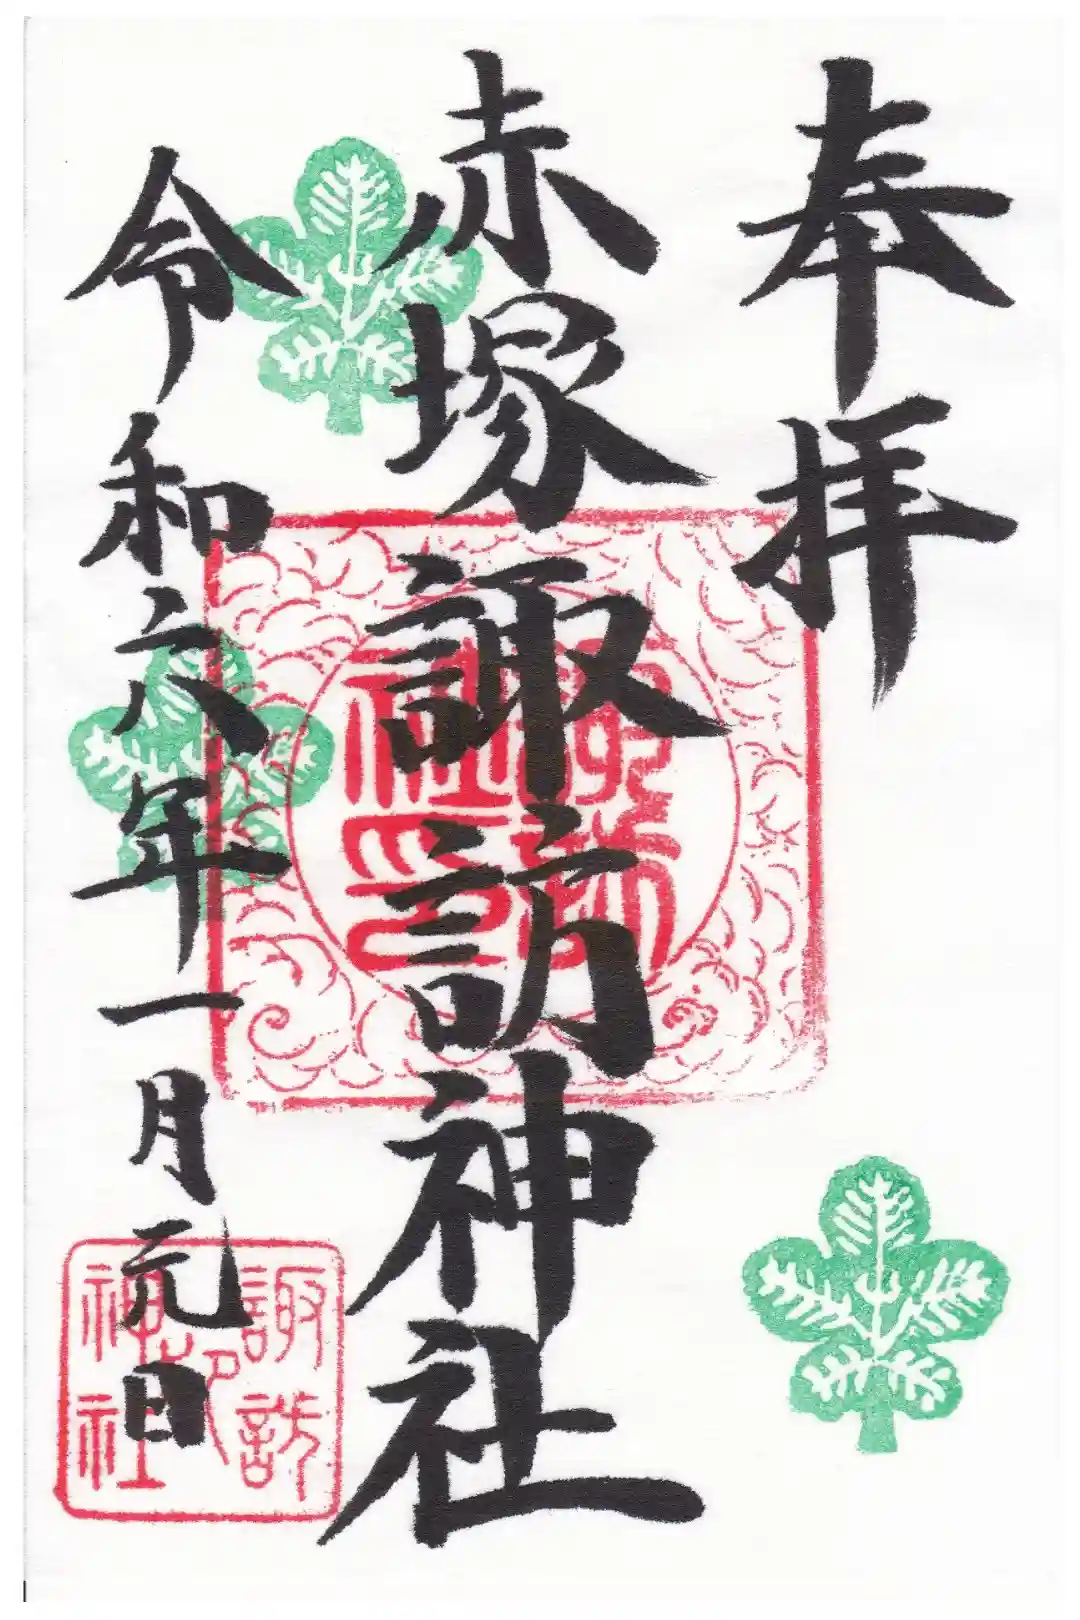 奉拝
赤塚諏訪神社
令和六年一月元日
諏訪
神社
印